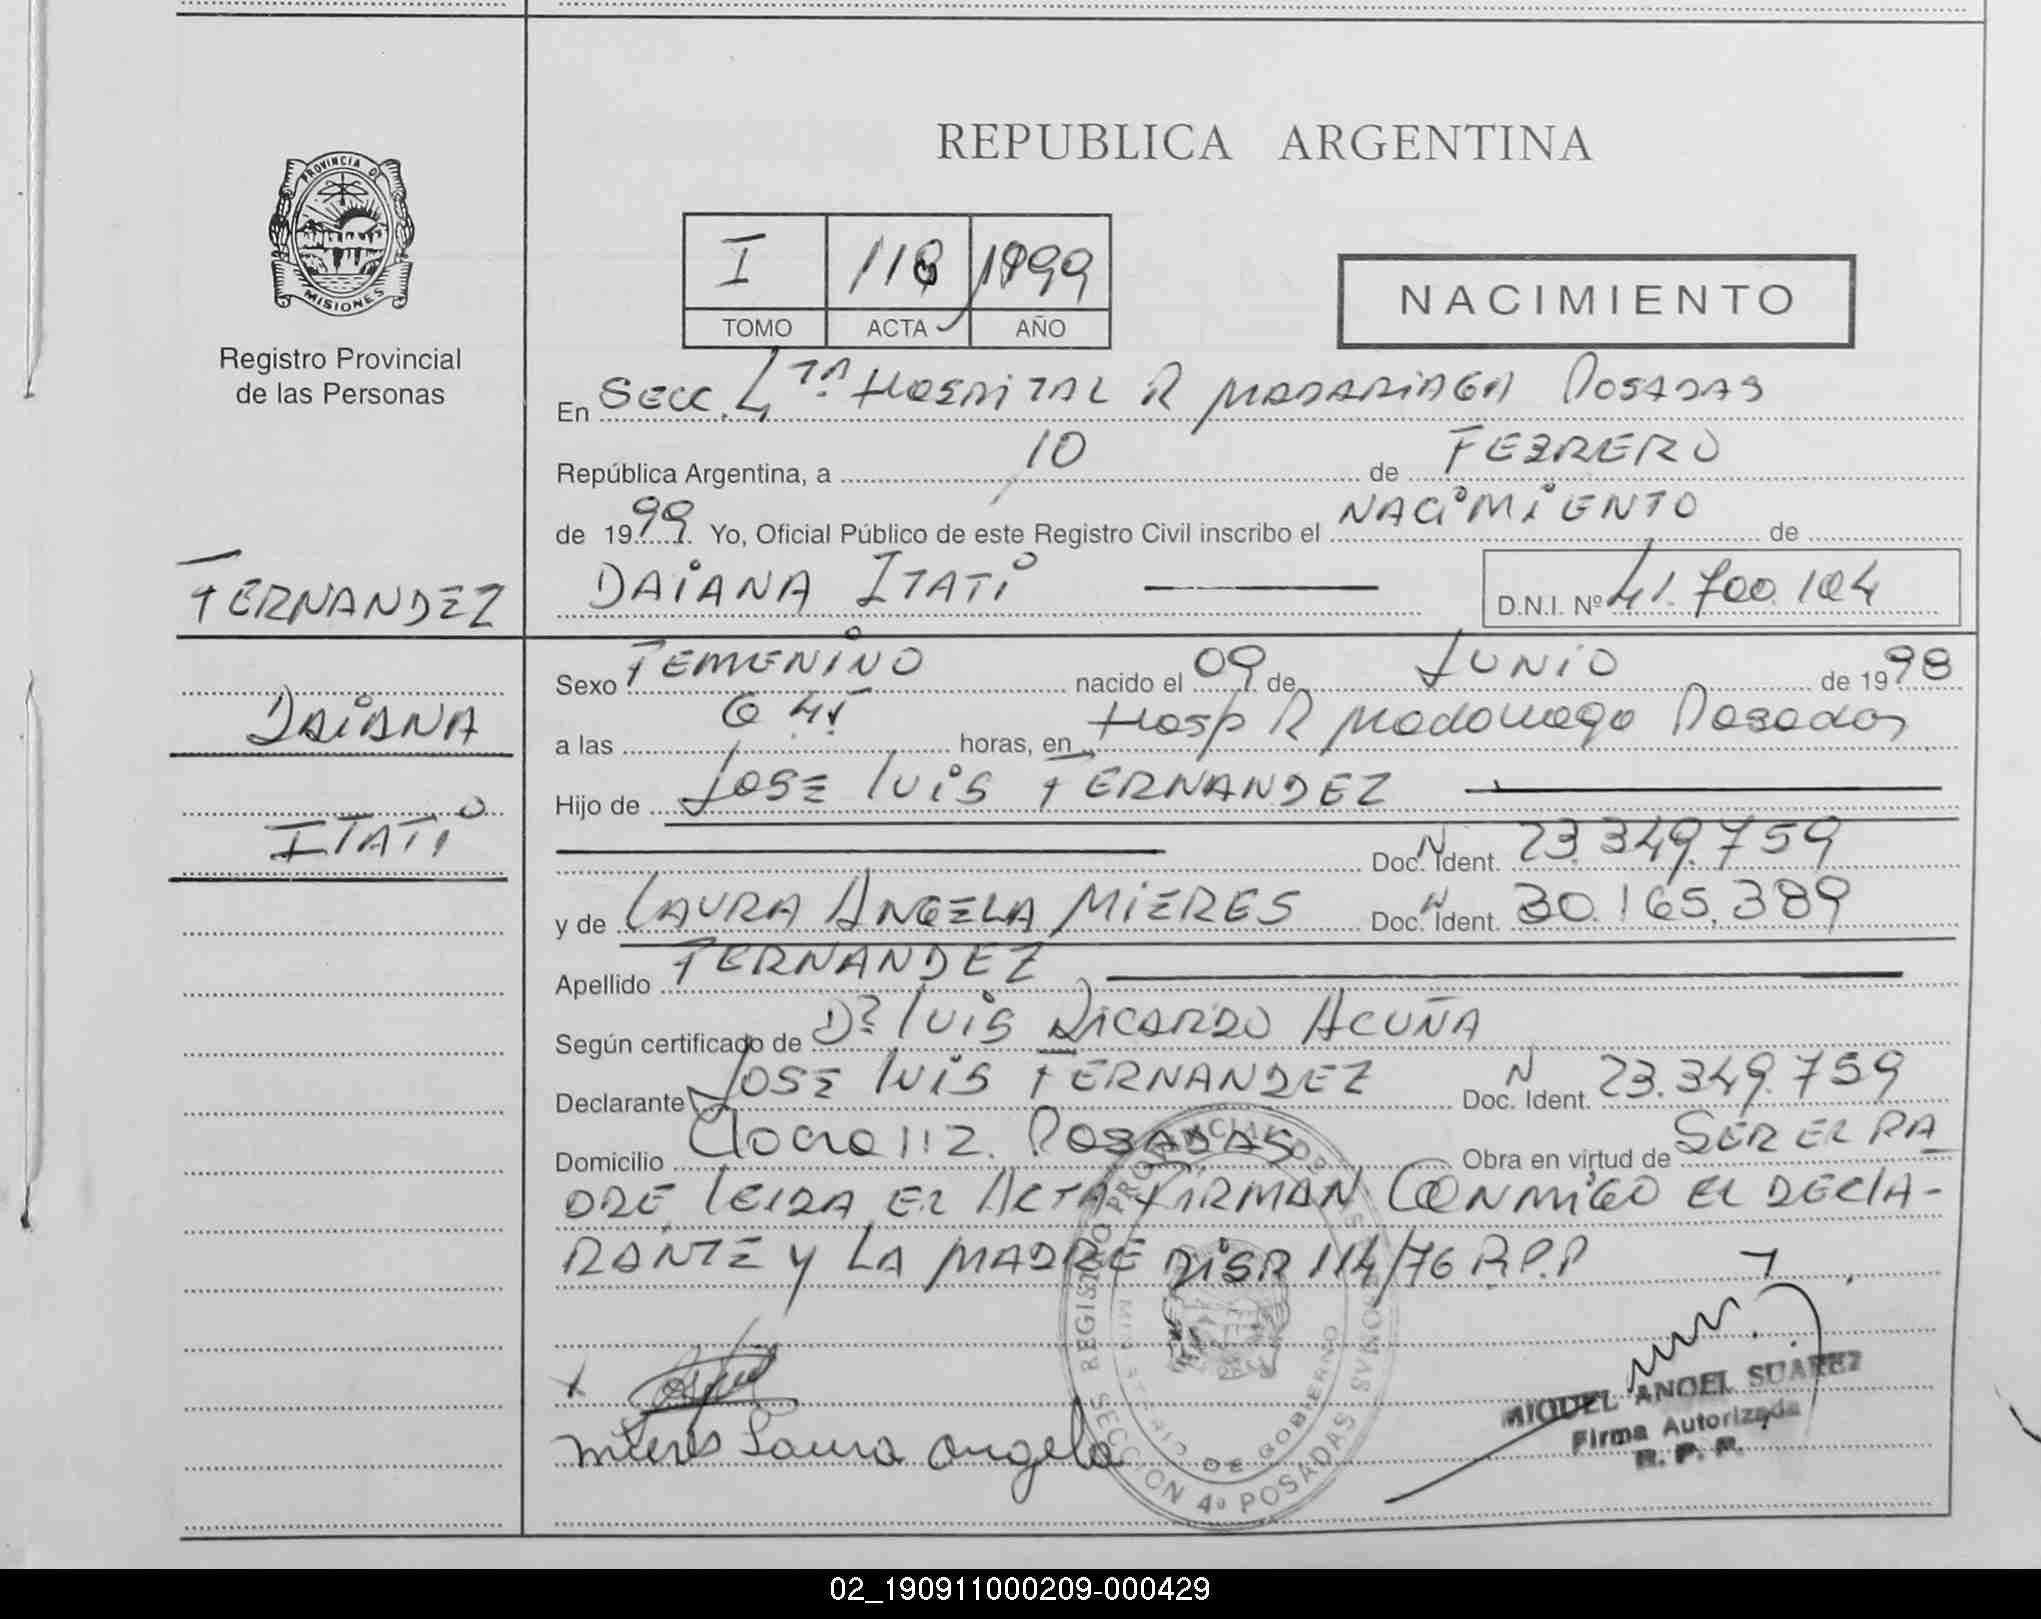 REPUBLICA ARGENTINA
PROVINCIA D
MISIONES
Registro Provincial
de las Personas
I 118 1999
TOMO ACTA AÑO
NACIMIENTO
En SECC. 4TA HOSPITAL R MADARIAGA POSADAS
República Argentina, a 10 de FEBRERO
de 1999 Yo, Oficial Público de este Registro Civil inscribo el NACIMIENTO de
FERNANDEZ
DAIANA ITATI
D.N.I. Nº 41.700.104
Sexo FEMENINO nacido el 09 de JUNIO de 1998
DAIANA
a las 6 45 horas, en Hosp R Madariaga Posadas
Hijo de JOSE LUIS FERNANDEZ
ITATI
Doc. N Ident. 23.349.759
y de LAURA ANGELA MIERES Doc. N Ident. 30.165.389
Apellido FERNANDEZ
Según certificado de Dr LUIS RICARDO ACUÑA
Declarante JOSE LUIS FERNANDEZ N Doc. Ident. 23.349.759
Domicilio 112. POSADAS Obra en virtud de SER EL PA
DRE LEIDA EL ACTA FIRMAN CONMIGO EL DECLA-
RANTE Y LA MADRE DISP 114/76 R.P.P
Mieres Laura Angela
REGISTRO PROVINCIAL DE LAS PERSONAS
MINISTERIO DE GOBIERNO
SECCION 4º POSADAS
MIGUEL ANGEL SUAREZ
Firma Autorizada
R. P. P.
02_190911000209-000429